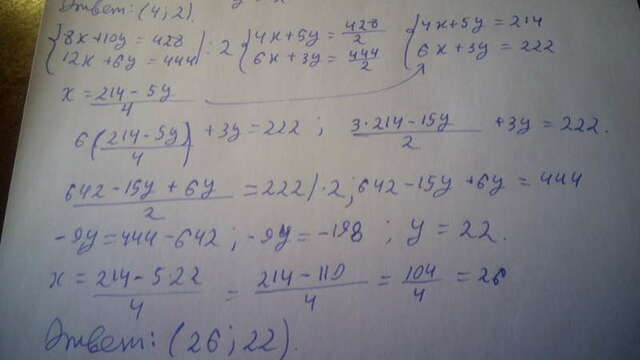 Ответ: (4; 2).
{8x+10y=428 12x+6y=444 | : 2 {4x+5y=428/2 6x+3y=444/2 {4x+5y=214 6x+3y=222
x = (214-5y)/4
6((214-5y)/4) + 3y = 222 ; (3·214-15y)/2 + 3y = 222.
(642-15y+6y)/2 = 222 |·2 ; 642-15y+6y = 444
-9y=444-642 ; -9y=-198 ; y = 22.
x = (214-5·22)/4 = (214-110)/4 = 104/4 = 26
Ответ: (26; 22).